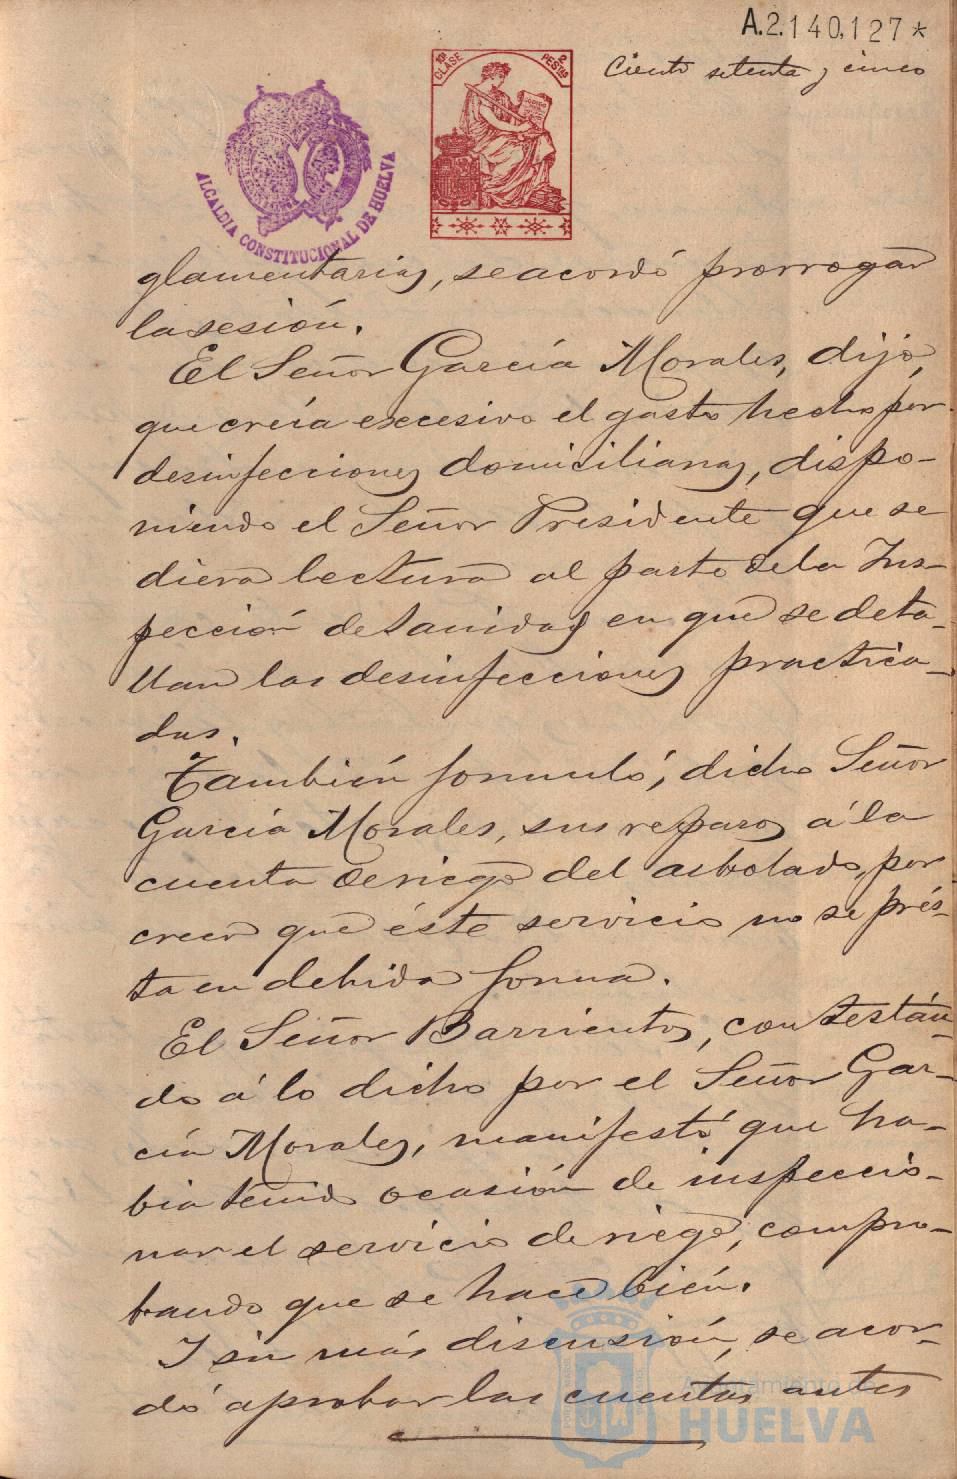 A.2.140,127*
Ciento setenta y cinco
10ª CLASE
2 PESTAS
ALCALDIA CONSTITUCIONAL DE HUELVA
glamentarias, se acordó prorrogar
la sesión.
El Señor García Morales, dijo,
que creía excesivo el gasto hecho por
desinfecciones domiciliarias, dispo-
niendo el Señor Presidente que se
diera lectura al parte de la Ins-
pección de Sanidad en que se deta-
llan las desinfecciones practica-
das.
También formuló, dicho Señor
García Morales, sus reparos á la
cuenta de riego del arbolado, por
creer que éste servicio no se prés-
ta en debida forma.
El Señor Barrientos, contestán
do á lo dicho por el Señor Gar-
cía Morales, manifestó que ha-
bia tenido ocasión de inspeccio-
nar el servicio de riego, compro-
bando que se hace bién.
Y sin más discusión, se acor-
dó aprobar las cuentas antes
Ayuntamiento de
HUELVA